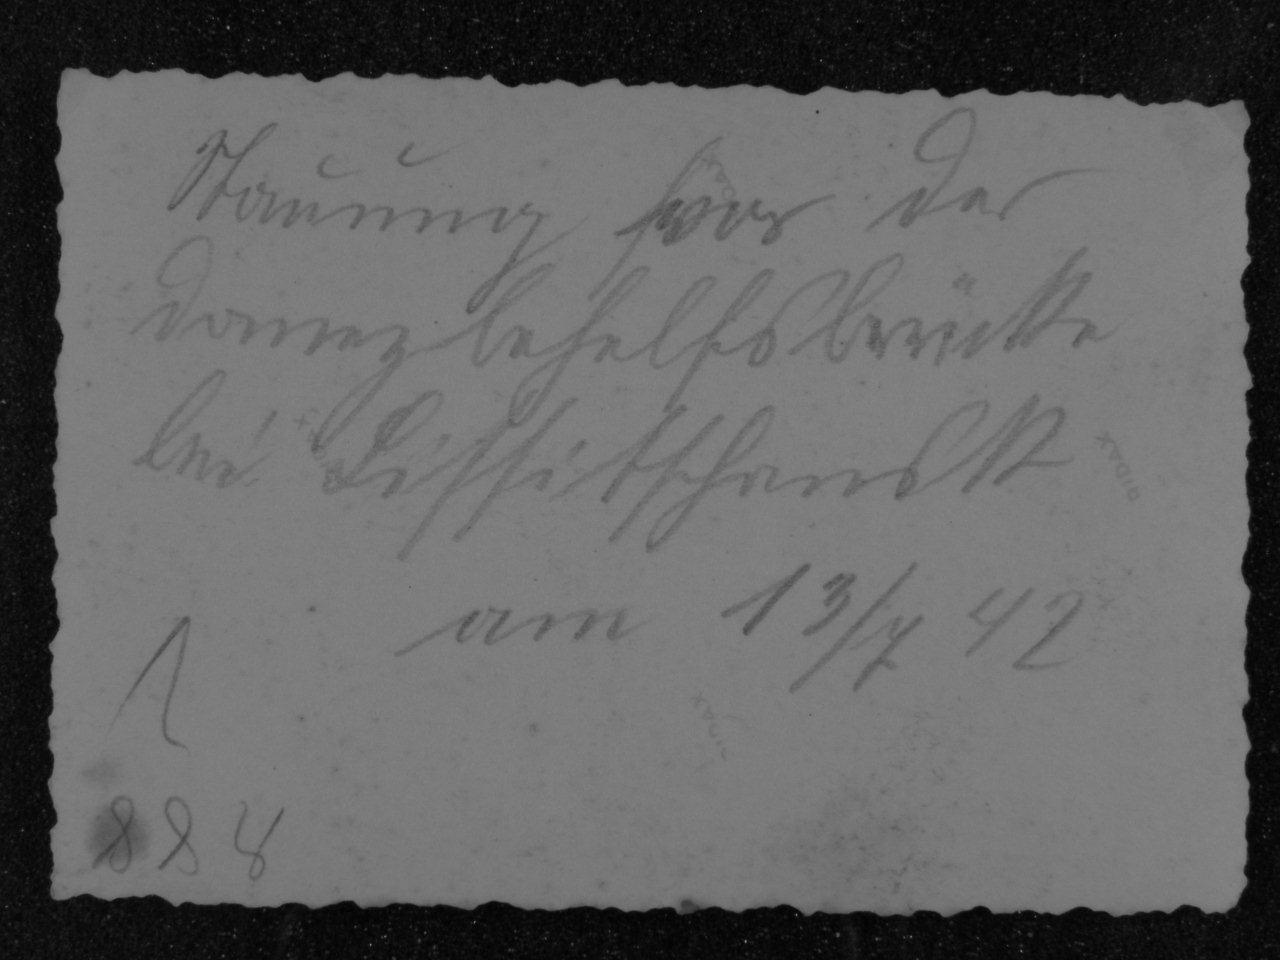 Stauung vor der
Donezbehelfsbrücke
bei Lissitschansk
am 13/7 42
888